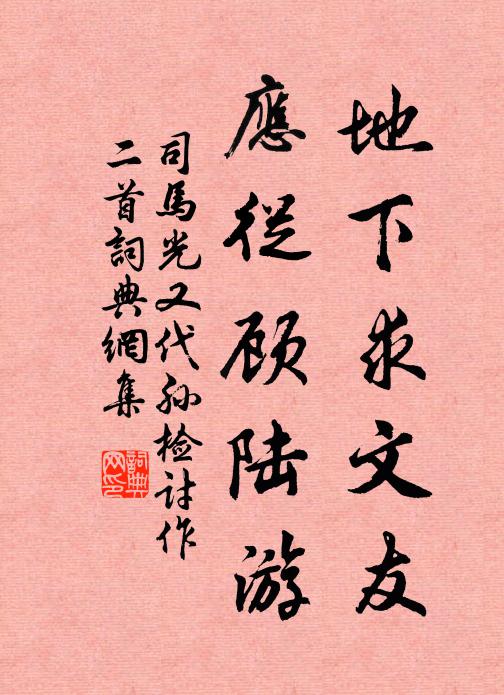 地下求文友
應從顾陆游
司馬光又代孙检討作
二首詞典網集
詞典
网印